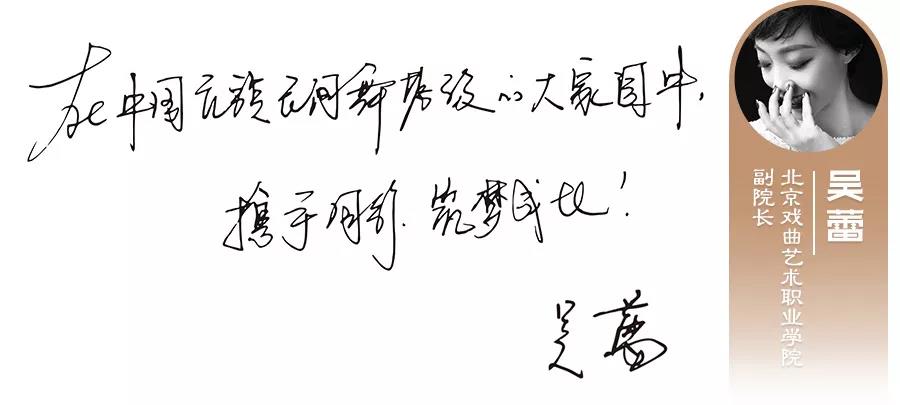 在中国民族民间舞考级的大家园中，
携手同行，筑梦成长！
吴蕾
吴蕾
北京戏曲艺术职业学院
副院长